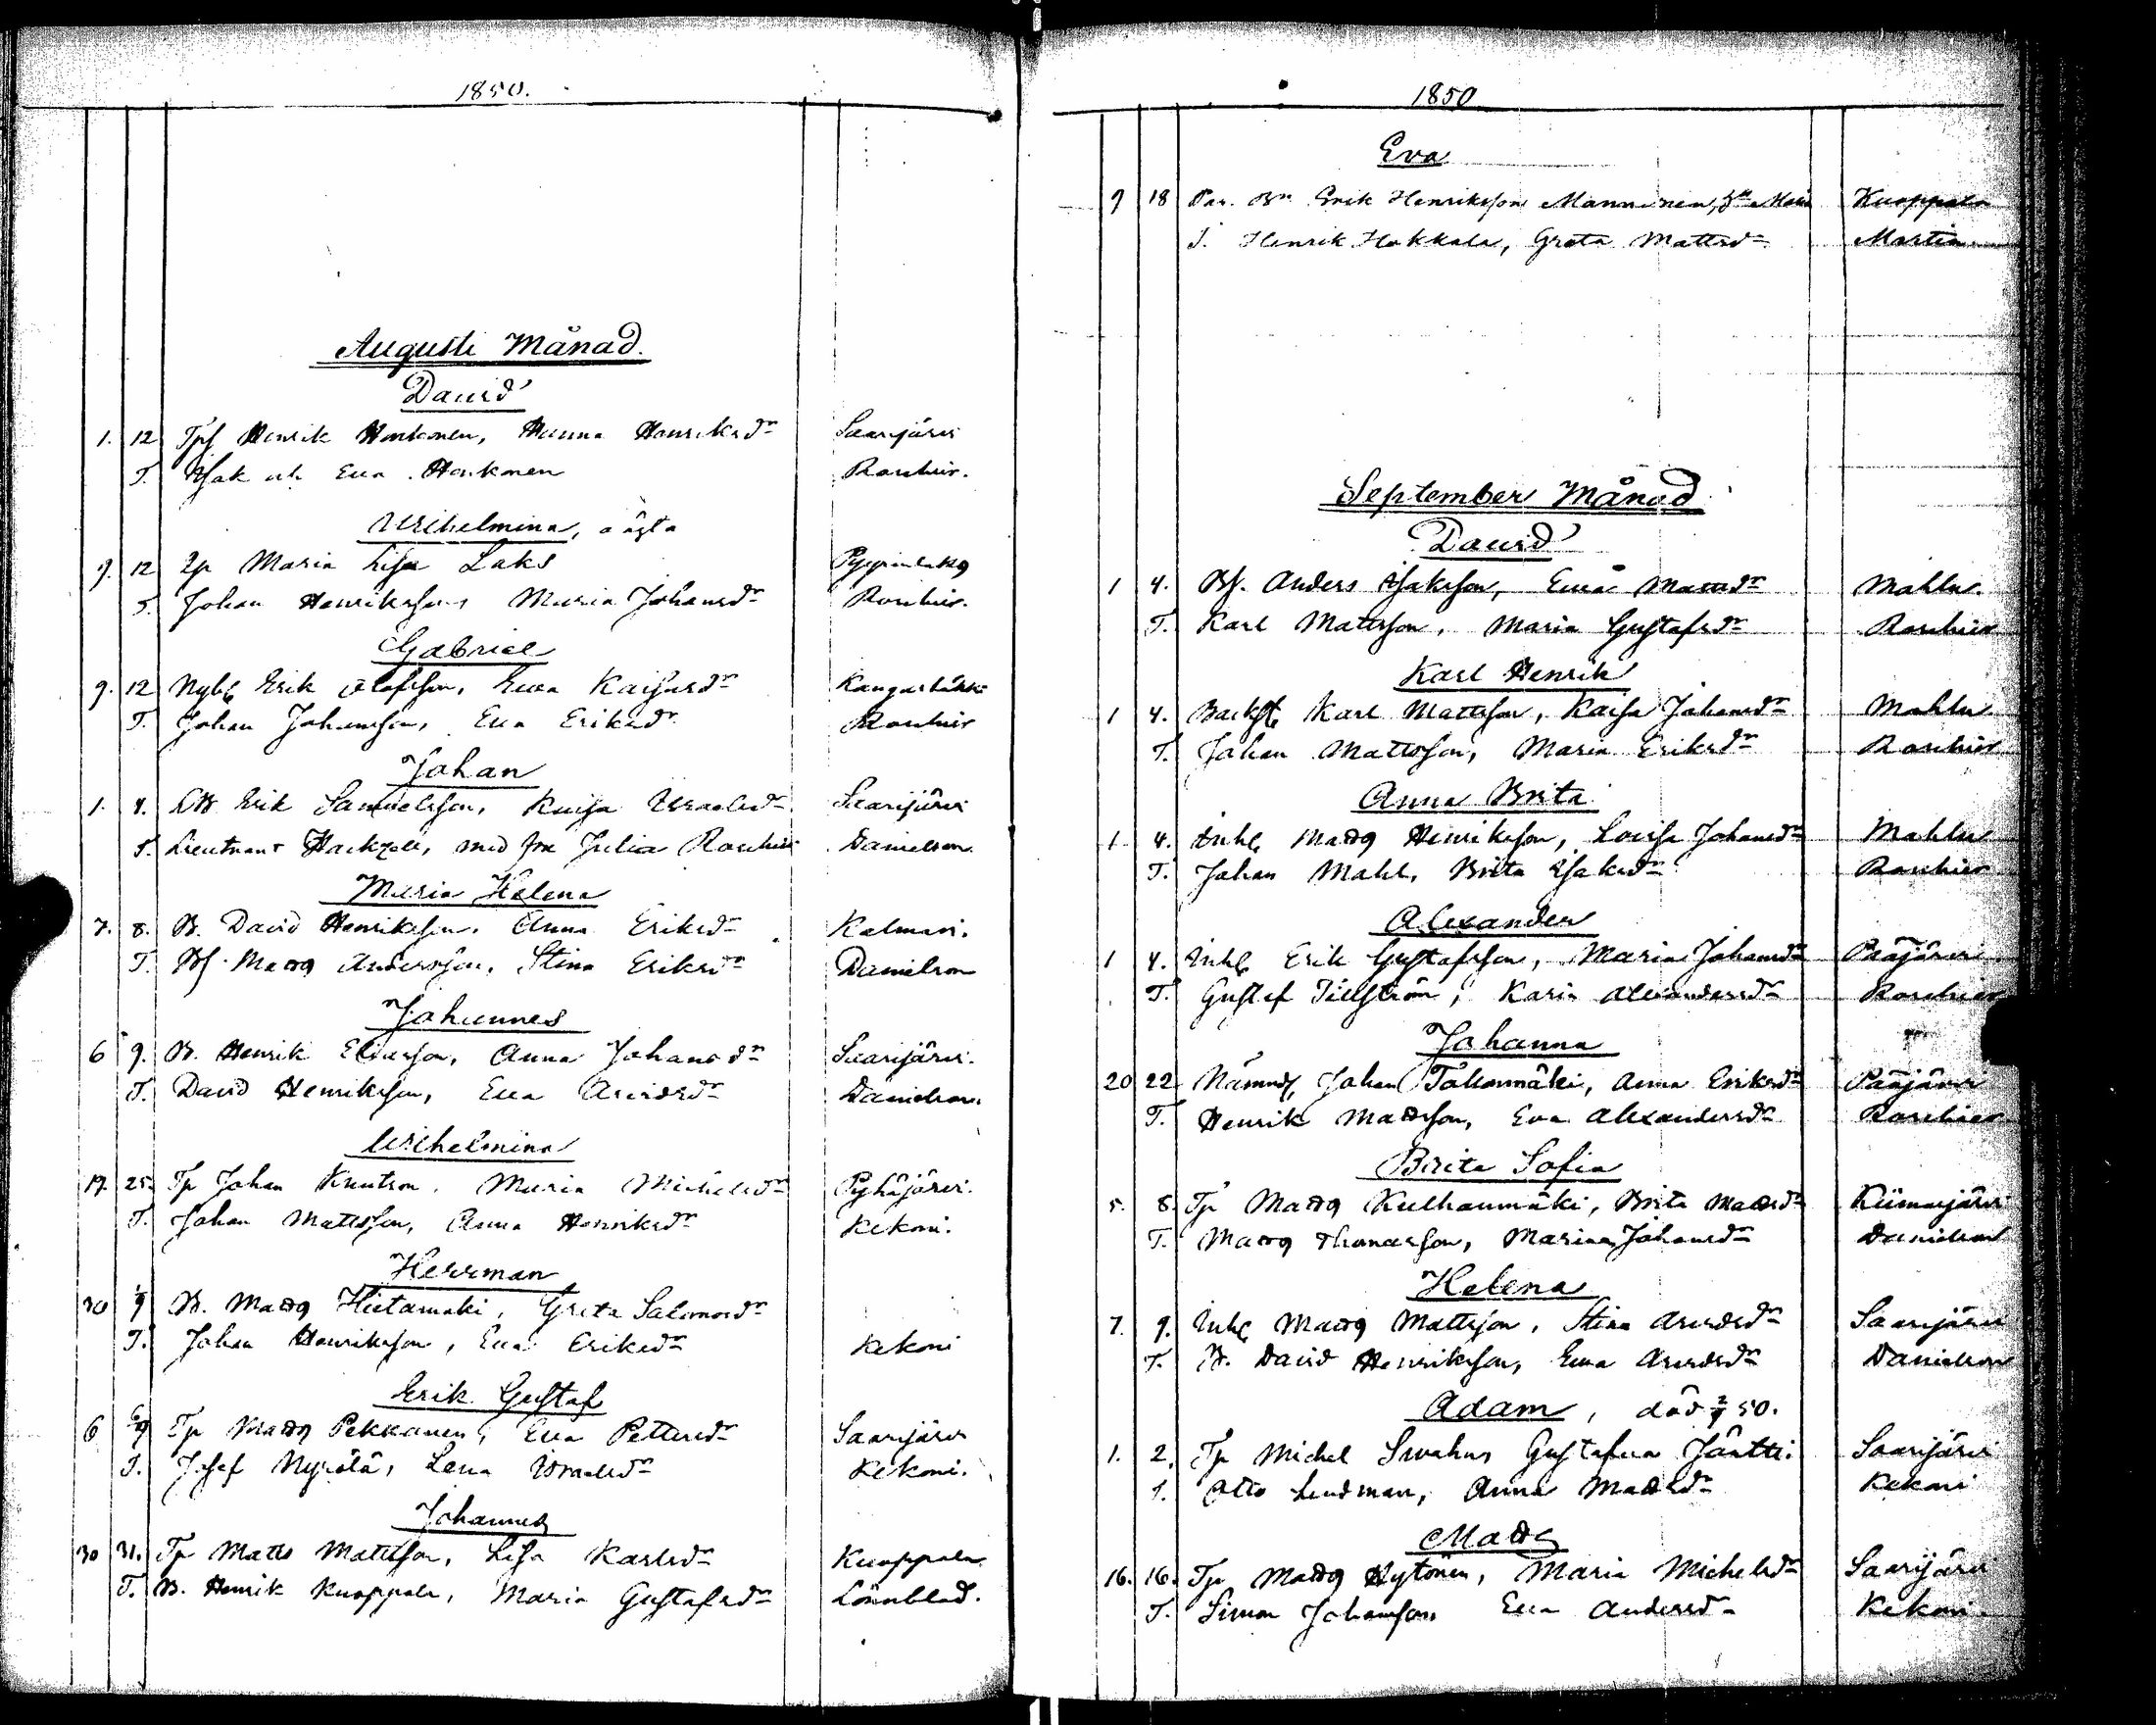 1850.
Augusti Månad.
David
1. 12 Tpf Henrik Honkonen, Hanna Henriksdr Saarijärvi
T. Isak och Eva Honkonen Roschier.
Wilhelmina, oägta
9. 12 Ip Maria Lisa Laks
T. Johan Henriksson, Maria Johansdr Roschier.
Gabriel
9. 12 Nybg Erik Olofsson, Ewa Kaisa
T. Johan Johansson, Eva Eriksdr Roschier
Johan
1. 4. Erik Samuelsson, Kaisa Israelsdr Saarijärvi
T. Lieutnant Hackzell, med frn Julia Roschier Danielson
Maria Helena
7. 8. B. David Henriksson, Anna Eriksdr Kalmari.
T. Bf. Matts Andersson, Stina Eriksdr Danielson
Johannes
6 9. B. Henrik Eliasson, Anna Johansdr Saarijärvi.
T. David Henriksson, Eva Arvidsdr Danielson.
Wilhelmina
17. 25. Tp Johan Knutson, Maria Michelsdr Pyhäjärvi.
T. Johan Mattsson, Anna Henriksdr Kekoni.
Herrman
30 1/9 B. Matts Hietamäki, Greta Salomonsdr
T. Johan Henriksson, Eva Eriksdr Kekoni
Erik Gustaf
6 Tp Matts Pekkanen, Eva Pettersdr Saarijärvi
T. Josef Nyrölä, Lena Israelsdr Kekoni.
Johannes
30 31. Tp Matts Mattsson, Lisa Karlsdr Kuoppala
T. B. Henrik Kuoppala, Maria Gustafsdr Lönnblad.
1850
Eva
9 18 Bn Erik Henriksson Manninen, Kuoppala
T. Henrik Hokkala, Greta Mattsdr Martin
September Månad
David
1 4. Bf. Anders Isaksson, Eva Mattsdr Mahlu.
T. Karl Mattsson, Maria Gustafsdr Roschier
Karl Henrik
1 4. Backst Karl Mattsson, Kaisa Johansdr Mahlu
T. Johan Mattsson, Maria Eriksdr Roschier
Anna Brita
1 4. Inhg Matts Henriksson, Lovisa Johansdr Mahlu
T. Johan Mahl, Brita Isaksdr Roschier
Alexander
1 4. Inhg Erik Gustafsson, Maria Johansdr Pääjärvi
T. Gustaf Tillström, Karin Alexandersdr Roschier
Johanna
20 22 Nämndm Johan Takanmäki, Anna Eriksdr Pääjärvi
T. Henrik Mattsson, Eva Alexandersdr Roschier
Brita Sofia
5. 8. Tp Matts Kulhanmäki, Brita Mattsdr Kiimasjärvi
T. Matts Thomasson, Maria Johansdr Danielson
Helena
7. 9. Inhg Matts Mattsson, Stina Arvidsdr Saarijärvi
T. B. David Henriksson, Ewa Arvidsdr Danielson
Adam, död 2/9 50.
1. 2. Tp Michel Gustafva Jäntti Saarijärvi
T. Otto Lindman, Anna Mattsdr Kekoni
Matts
16. 16. Tp Matts Hytönen, Maria Michelsdr Saarijärvi
T. Simon Johansson, Eva Andersdr Kekoni.